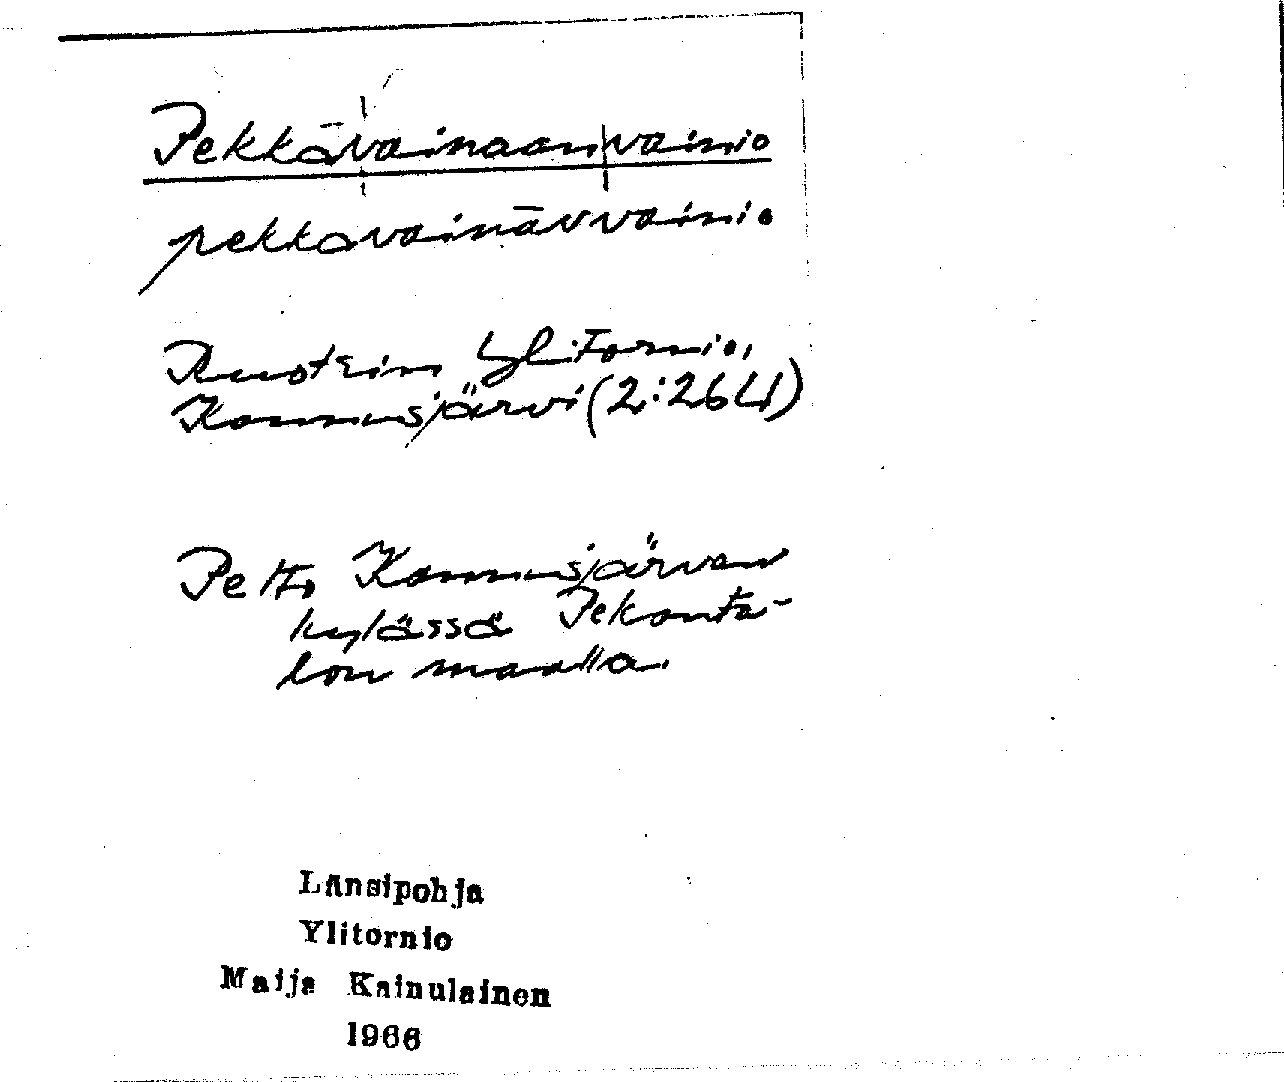 Pekkavainaanvainio
pekkavaināvvainio
Ruotsin Ylitornio,
Kannusjärvi (2:264)
Pelto Kannusjärven
kylässä Pekanta-
lon maalla.
Länsipohja
Ylitornio
Maija Kainulainen
1966